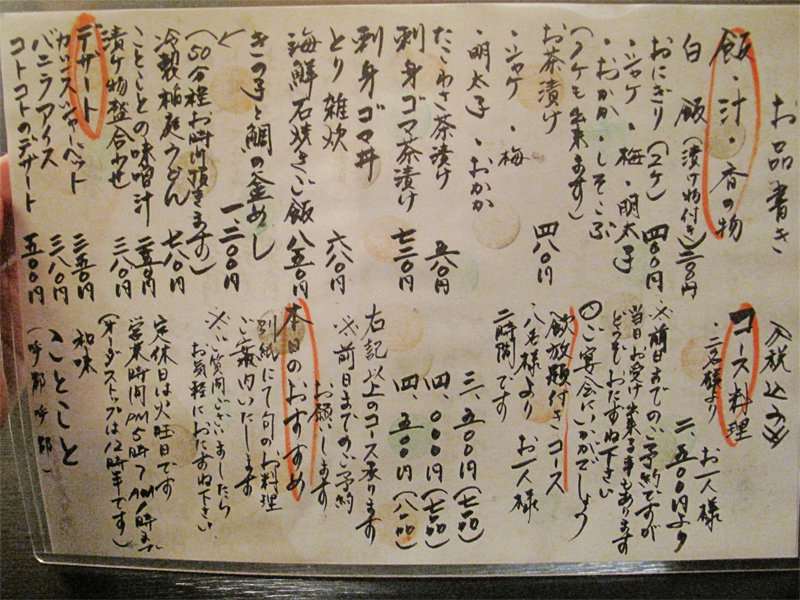 お品書き
飯・汁・香の物
白飯(漬け物付き)二〇〇円
おにぎり(2ケ)四〇〇円
・シャケ・梅・明太子
・おかか・しそこぶ
(1ケも出来ます)
お茶漬け 四八〇円
・シャケ・梅
・明太子・おかか
たこわさ茶漬け 五八〇円
刺身ゴマ茶漬け 七三〇円
刺身ゴマ丼
とり雑炊 六八〇円
海鮮石焼きご飯 八五〇円
きの子と鯛の釜めし 一、二〇〇円
(50分程お時間頂きます)
冷製稲庭うどん 七八〇円
ことことの味噌汁 二五〇円
漬け物盛合わせ 三八〇円
デザート
カシスシャーベット 三五〇円
バニラアイス 三八〇円
コトコトのデザート 五〇〇円
(税込み)
コース料理
・二名様より お一人様
二、五〇〇円より
※前日までのご予約ですが
当日お受け出来る事もあります
どうぞおたずね下さい
ご宴会にいかがでしょう
飲放題付きコース
・八名様より お一人様
二時間です
三、五〇〇円(七品)
四、〇〇〇円(七品)
四、五〇〇円(八品)
右記以上のコース承ります
※前日までのご予約
お願いします
本日のおすすめ
別紙にて旬のお料理
ご案内いたします
※ご質問ございましたら
お気軽におたずね下さい
定休日は火曜日です
営業時間PM5時〜AM1時まで
(オーダーストップは12時半です)
和味
ことこと